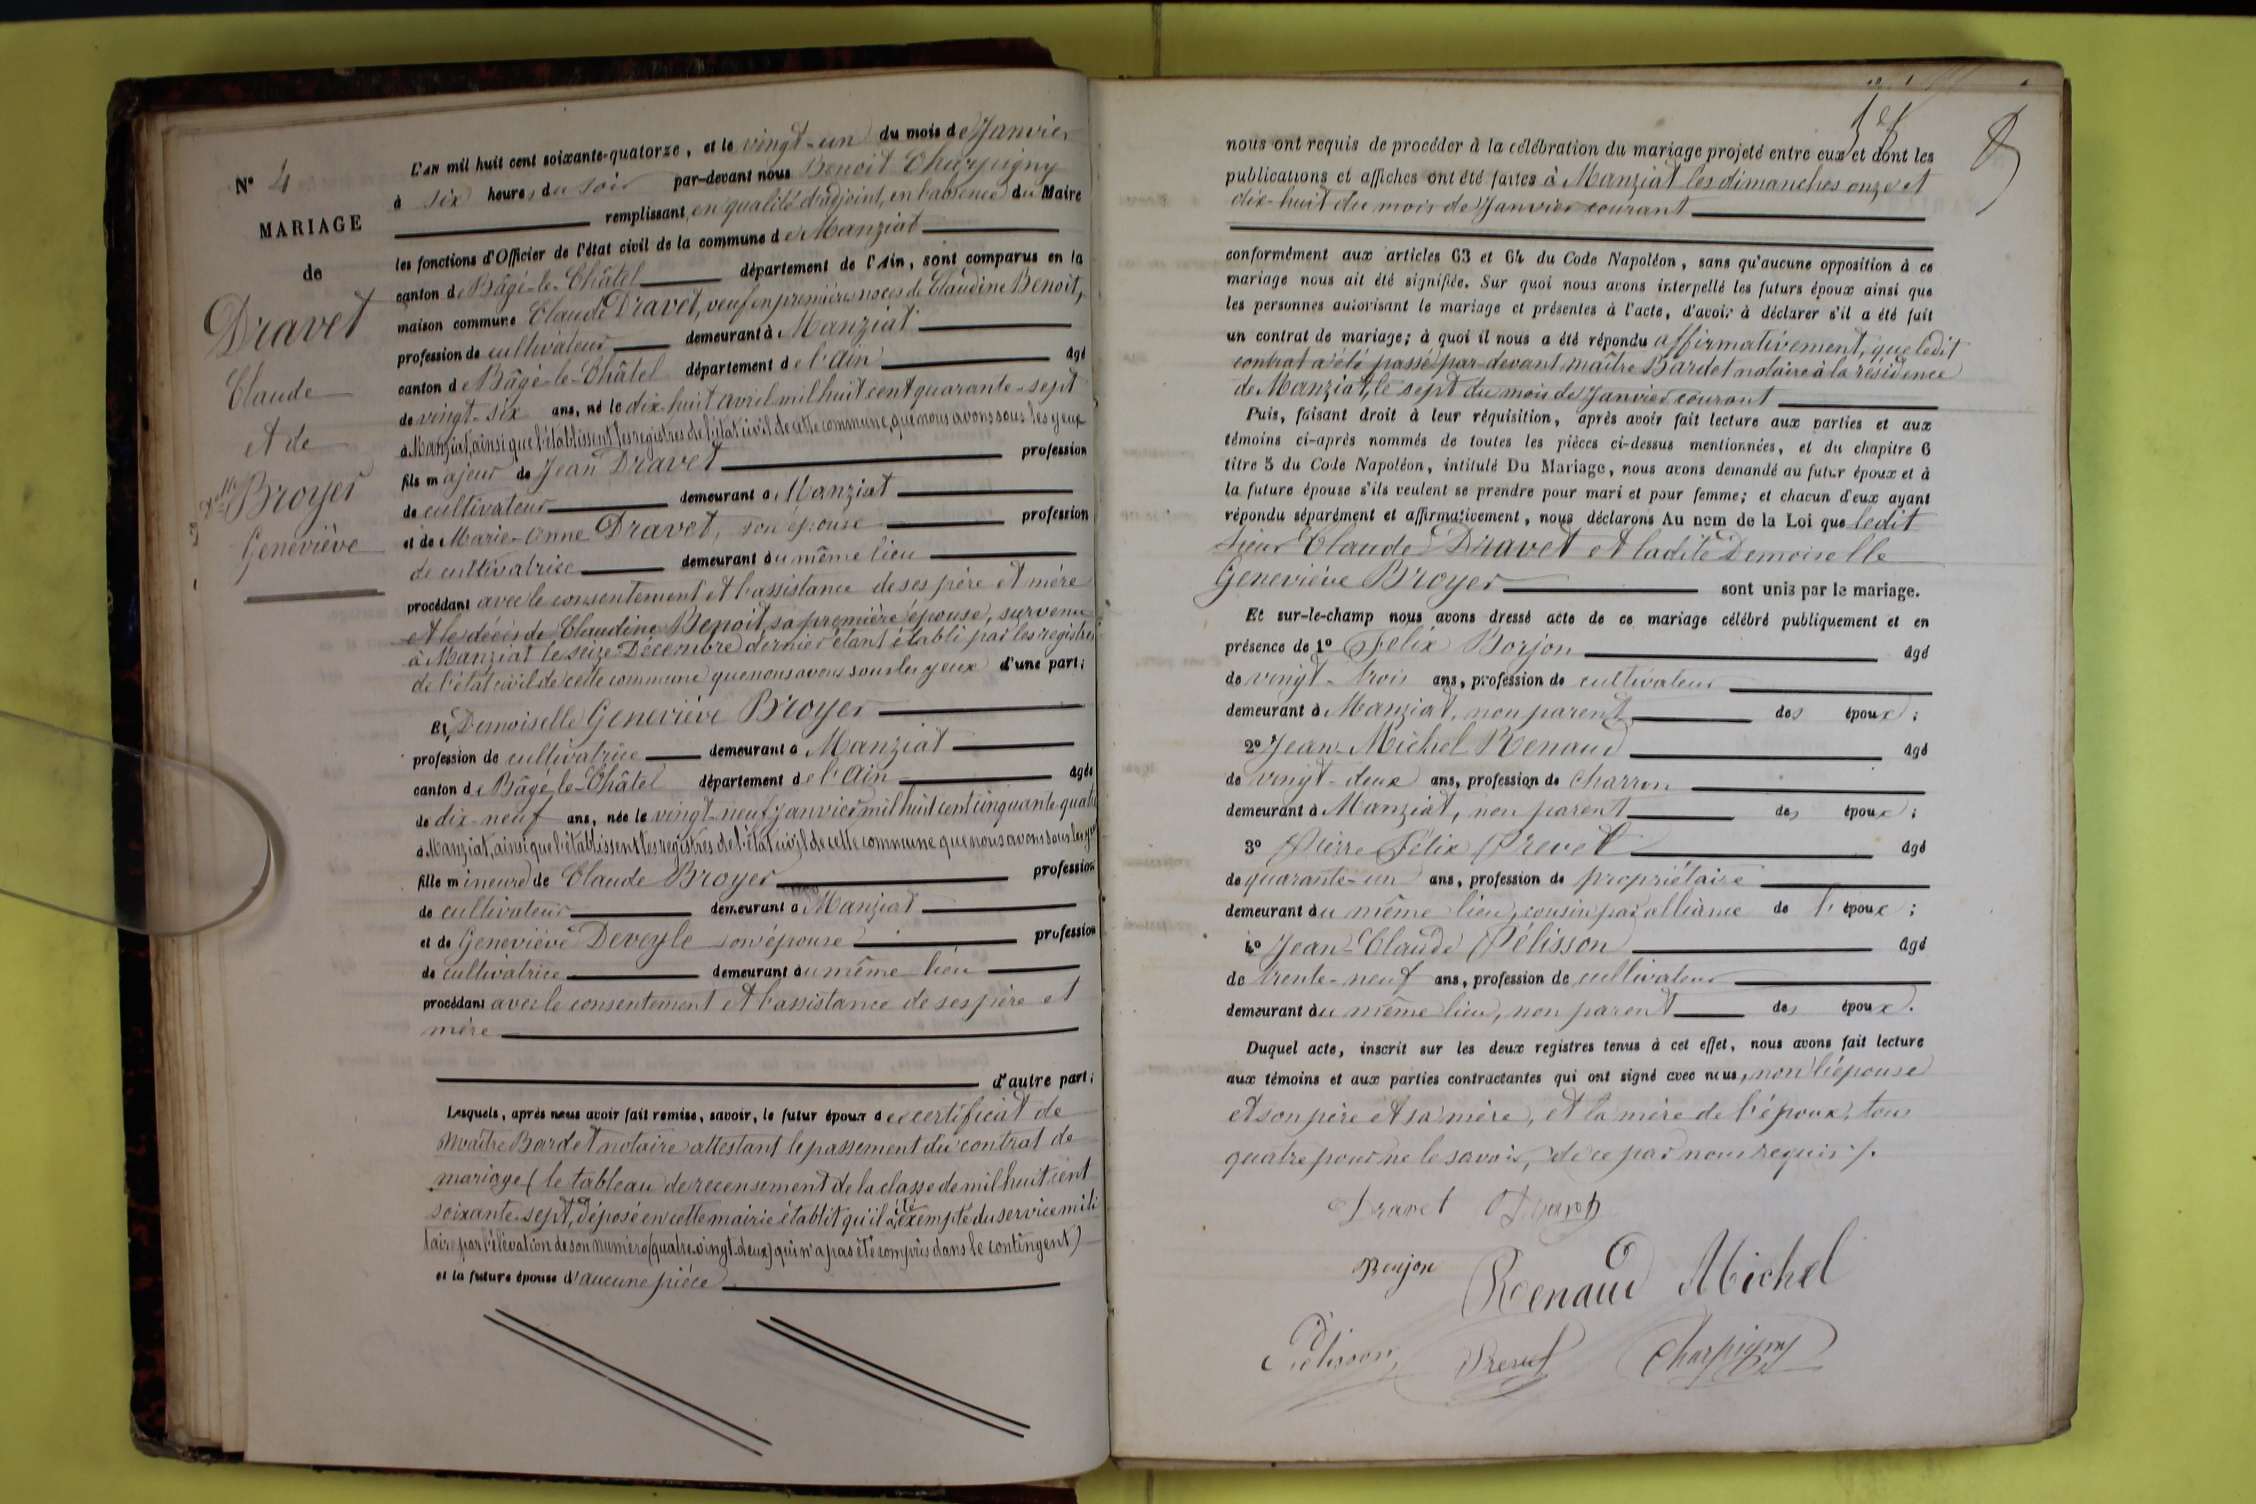 N° 4
MARIAGE
de
Dravet
Claude
et de
Dlle Broyer
Geneviève
L'AN mil huit cent soixante-quatorze, et le vingt-un du mois de Janvier
à six heures du soir par-devant nous Benoit Charpigny
remplissant, en qualité d'adjoint, en l'absence du Maire
les fonctions d'Officier de l'état civil de la commune de Manziat
canton de Bâgé-le-Châtel département de l'Ain, sont comparus en la
maison commune Claude Dravet, veuf en premières noces de Claudine Benoit,
profession de cultivateur demeurant à Manziat
canton de Bâgé-le-Châtel département de l'Ain âgé
de vingt-six ans, né le dix-huit avril mil huit cent quarante-sept
à Manziat, ainsi que l'établissent les registres de l'état civil de cette commune, que nous avons sous les yeux
fils majeur de Jean Dravet profession
de cultivateur demeurant à Manziat
et de Marie-Anne Dravet, son épouse profession
de cultivatrice demeurant au même lieu
procédant avec le consentement et l'assistance de ses père et mère
et le décès de Claudine Benoit, sa première épouse, survenu
à Manziat le seize Décembre dernier étant établi par les registres
de l'état civil de cette commune que nous avons sous les yeux d'une part;
Et Demoiselle Geneviève Broyer
profession de cultivatrice demeurant à Manziat
canton de Bâgé-le-Châtel département de l'Ain âgée
de dix-neuf ans, née le vingt-neuf janvier mil huit cent cinquante-quatre
à Manziat, ainsi que l'établissent les registres de l'état civil de cette commune que nous avons sous les yeux
fille mineure de Claude Broyer profession
de cultivateur demeurant à Manziat
et de Geneviève Deveyle son épouse profession
de cultivatrice demeurant au même lieu
procédant avec le consentement et l'assistance de ses père et
mère
d'autre part;
Lesquels, après nous avoir fait remise, savoir, le futur époux de ce certificat de
Maître Bardet notaire attestant le passement du contrat de
mariage (le tableau de recensement de la classe de mil huit cent
soixante-sept, déposé en cette mairie établit qu'il a été exempté du service mili
taire par l'élévation de son numéro (quatre-vingt-deux) qui n'a pas été compris dans le contingent)
et la future épouse d'aucune pièce
8
nous ont requis de procéder à la célébration du mariage projeté entre eux et dont les
publications et affiches ont été faites à Manziat les dimanches onze et
dix-huit du mois de Janvier courant
conformément aux articles 63 et 64 du Code Napoléon, sans qu'aucune opposition à ce
mariage nous ait été signifiée. Sur quoi nous avons interpellé les futurs époux ainsi que
les personnes autorisant le mariage et présentes à l'acte, d'avoir à déclarer s'il a été fait
un contrat de mariage; à quoi il nous a été répondu affirmativement, que ledit
contrat a été passé par-devant maître Bardet notaire à la résidence
de Manziat, le sept du mois de Janvier courant
Puis, faisant droit à leur réquisition, après avoir fait lecture aux parties et aux
témoins ci-après nommés de toutes les pièces ci-dessus mentionnées, et du chapitre 6
titre 5 du Code Napoléon, intitulé Du Mariage, nous avons demandé au futur époux et à
la future épouse s'ils veulent se prendre pour mari et pour femme; et chacun d'eux ayant
répondu séparément et affirmativement, nous déclarons Au nom de la Loi que ledit
sieur Claude Dravet et ladite Demoiselle
Geneviève Broyer sont unis par le mariage.
Et sur-le-champ nous avons dressé acte de ce mariage célébré publiquement et en
présence de 1° Felix Borjon âgé
de vingt-trois ans, profession de cultivateur
demeurant à Manziat, non parent des époux;
2° Jean-Michel Renaud âgé
de vingt-deux ans, profession de charron
demeurant à Manziat, non parent des époux;
3° Pierre Félix Prevet âgé
de quarante-un ans, profession de propriétaire
demeurant au même lieu, cousin par alliance de l'époux;
4° Jean-Claude Pélisson âgé
de trente-neuf ans, profession de cultivateur
demeurant au même lieu, non parent des époux.
Duquel acte, inscrit sur les deux registres tenus à cet effet, nous avons fait lecture
aux témoins et aux parties contractantes qui ont signé avec nous, non l'épouse
et son père et sa mère, et la mère de l'époux, tous
quatre pour ne le savoir, de ce par nous requis /.
Dravet Dravet
Borjon Renaud Michel
Pélisson Prevet Charpigny